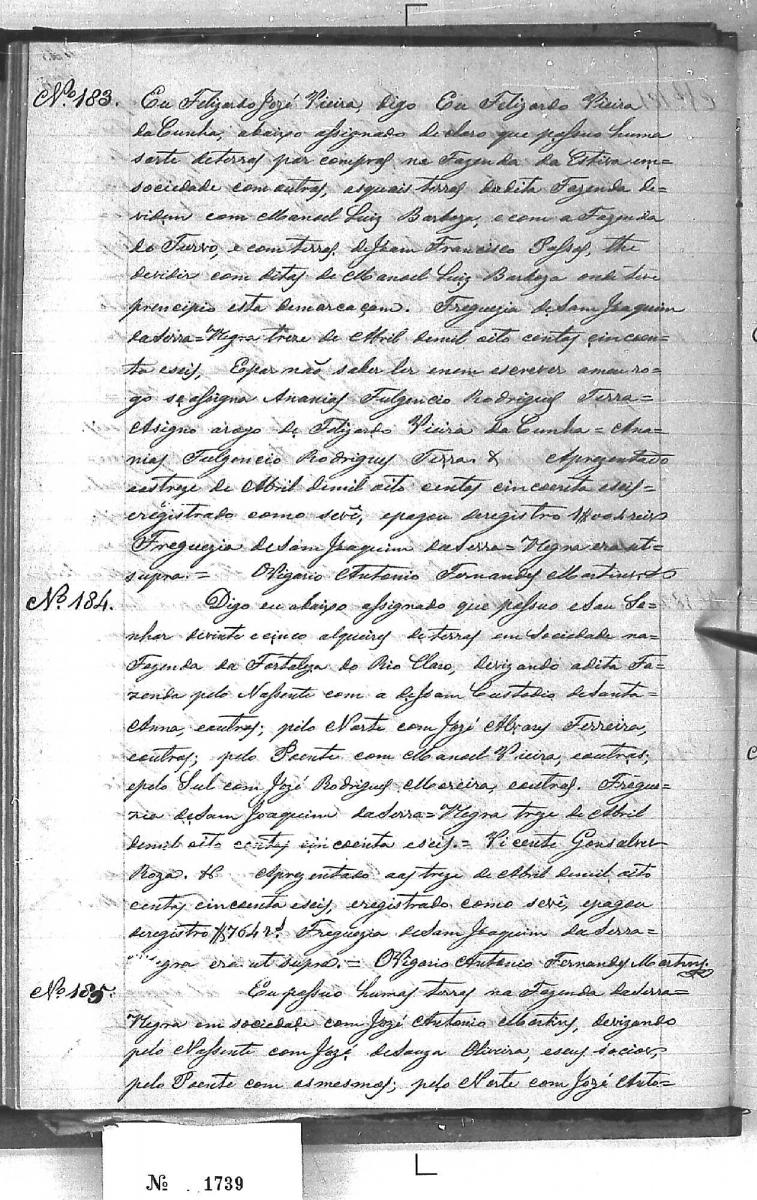 Nº 183. Eu Felizardo Jozé Vieira, digo Eu Felizardo Vieira
da Cunha, abaixo assignado declaro que possuo huma
sorte deterras por compras na Fazenda da Estiva em=
sociedade com outros, asquais terras dadita Fazenda de=
videm com Manoel Luiz Barboza, e com a Fazenda
do Turvo, e com terras de Joam Francisco Passos, the
devidir com ditas de Manoel Luiz Barboza onde teve
principio esta demarcaçam. Freguezia de Sam Joaquim
da Serra=Negra treze de Abril demil oito centos cincoen=
ta eseis, Epor não saber ler enem escrever ameu ro=
go se assigna Ananias Fulgencio Rodrigues Terra=
Asigno arogo de Felizardo Vieira da Cunha= Ana=
nias Fulgencio Rodrigues Terra. & Aprezentado
aostreze de Abril demil oito centos cincoenta eseis=
eregistrado como sevê, epagou deregistro
Freguezia de Sam Joaquim da Serra=Negra era ut=
supra.= OVigario Antonio Fernandes Martins.
Nº 184. Digo eu abaixo assignado que possuo esou Se=
nhor devinte ecinco alqueires de terras em Sociedade na=
Fazenda da Fortaleza do Rio Claro, devizando adita Fa=
zenda pelo Nassente com a de Joam Custodio deSanta=
Anna, eoutros; pelo Norte com Jozé Alvares Ferreira,
eoutros; pelo Poente com Manoel Vieira, eoutros;
epelo Sul com Jozé Rodrigues Moreira, eoutros. Fregue=
zia de Sam Joaquim da Serra=Negra treze de Abril
demil oito centos cincoenta eseis.= Vicente Gonsalves
Roza. & Aprezentado aostreze de Abril demil oito
centos cincoenta eseis, eregistrado como sevê, epagou
deregistro Freguezia de Sam Joaquim da Serra=
Negra era ut supra.= OVigario Antonio Fernandes Martins.
Nº 185. Eu possuo humas terras na Fazenda da Serra=
Negra em sociedade com Jozé Antonio Martins, devizando
pelo Nassente com Jozé de Souza Oliveira, eseus socios,
pelo Poente com osmesmos; pelo Norte com Jozé Anto=
Nº 1739